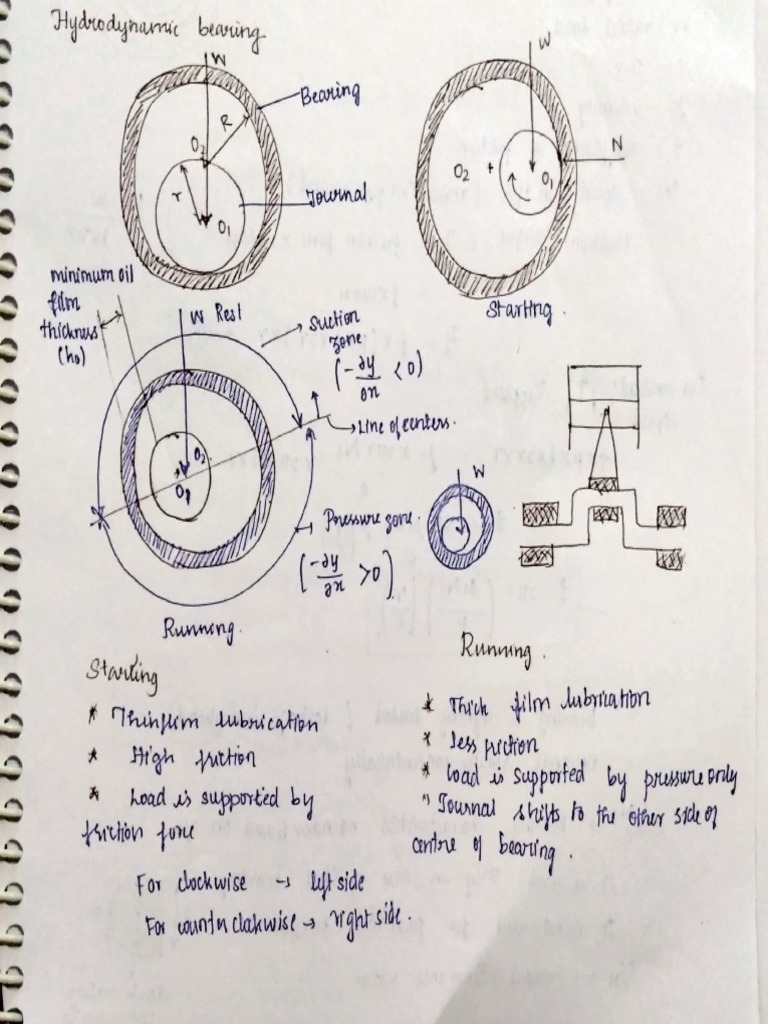 Hydrodynamic bearing
W
Bearing
R
O2
r
Journal
O1
W
N
O2
O1
Starting.
minimum oil
film
thickness
(h0)
W Rest
Suction
zone
(-∂y/∂x < 0)
Line of centers.
O2
O1
Pressure zone.
(-∂y/∂x > 0)
W
Running.
Starting
* Thinfilm lubrication
* High friction
* Load is supported by
friction force
For clockwise → left side
For countn clakwise → right side.
Running.
* Thick film lubrication
* less friction
* load is supported by pressure only
" Journal shifts to the other side of
centre of bearing.